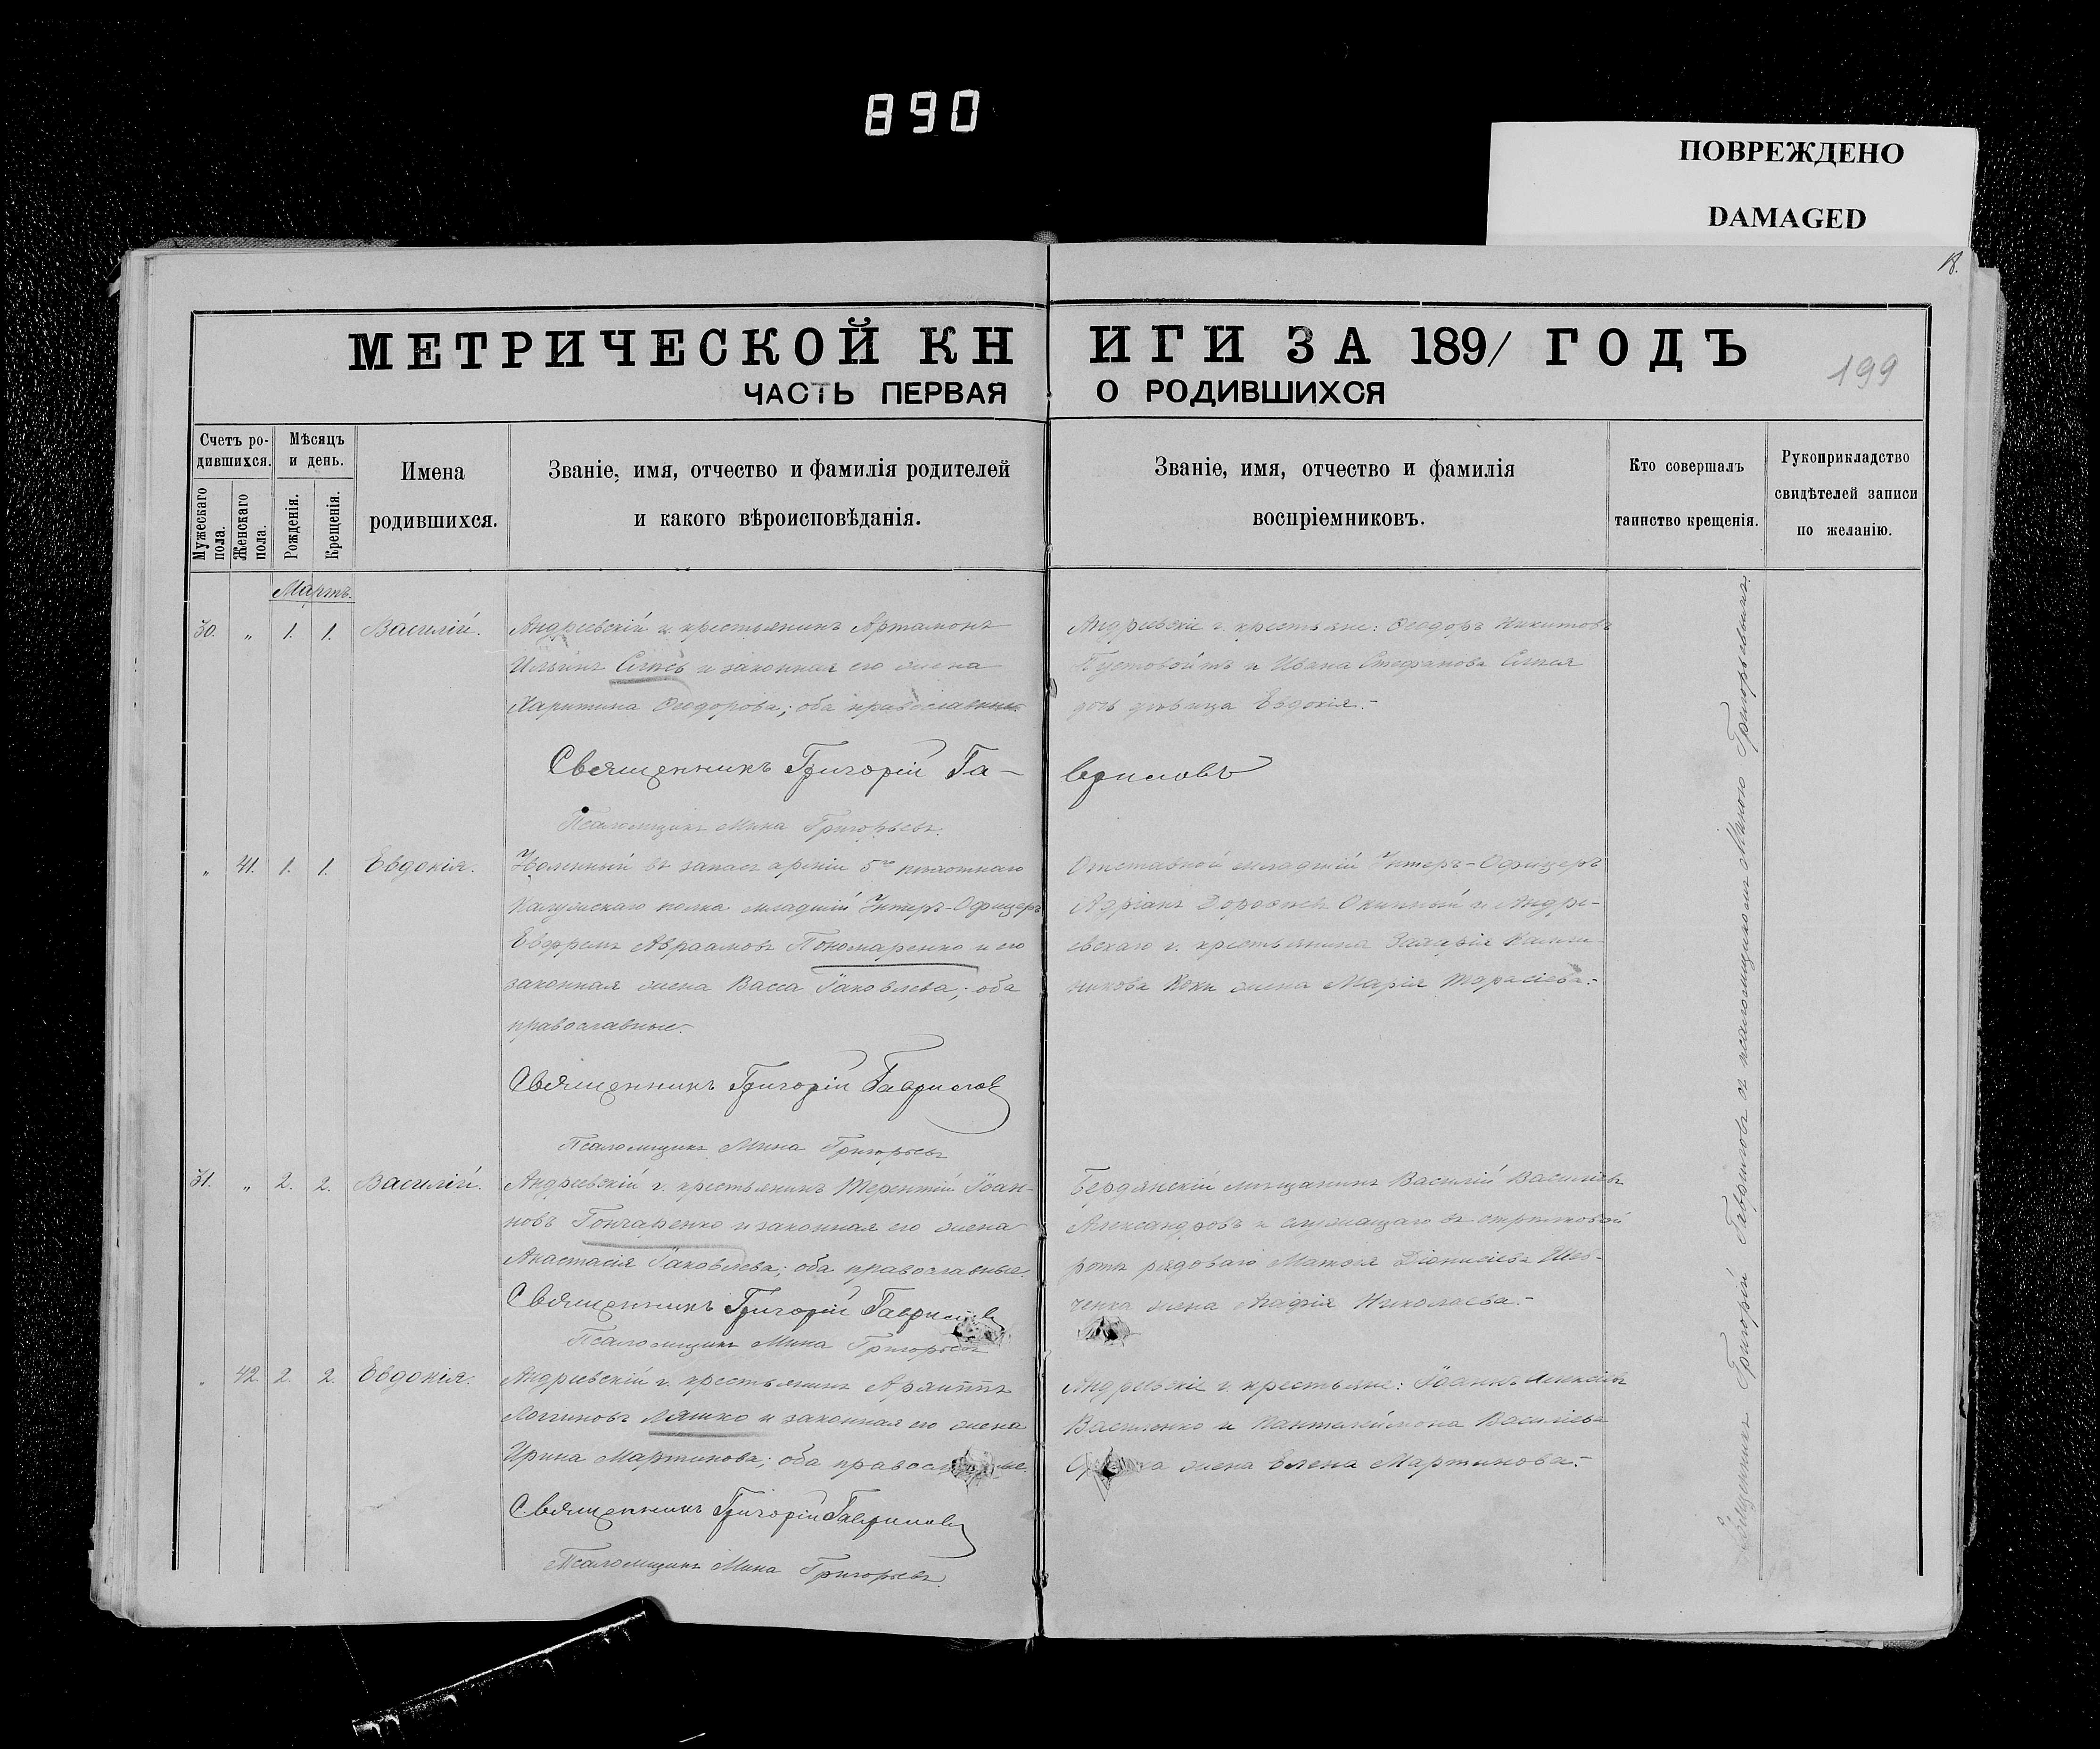 890
ПОВРЕЖДЕНО
DAMAGED
18.
МЕТРИЧЕСКОЙ КНИГИ ЗА 1891 ГОДЪ
199
ЧАСТЬ ПЕРВАЯ О РОДИВШИХСЯ
Счетъ родившихся.
Мужескаго пола.
Женскаго пола.
Мѣсяцъ и день.
Рожденія.
Крещенія.
Имена родившихся.
Званіе, имя, отчество и фамилія родителей
и какого вѣроисповѣданія.
Званіе, имя, отчество и фамилія
воспріемниковъ.
Кто совершалъ
таинство крещенія.
Рукоприкладство
свидѣтелей записи
по желанію.
Мартъ.
30. „ 1. 1. Василій.
Андреевскій г. крестьянинъ Артамонъ
Ильинъ и законная его жена
Харитина Ѳеодорова; оба православные.
Андреевскіе г. крестьяне: Ѳеодоръ Никитовъ
Пустовойтъ и Ивана Стефанова
дочь дѣвица Евдокія.-
Священникъ Григорій Гавриловъ
Псаломщикъ Мина Григорьевъ.
„ 41. 1. 1. Евдокія.
Уволенный въ запасъ арміи 5го пѣхотнаго
Калужскаго полка младшій Унтеръ-Офицеръ
Евфремъ Авраамовъ Пономаренко и его
законная жена Васса Іаковлева; оба
православные.-
Отставной младшій Унтеръ-Офицеръ
Адріанъ и Андре-
евскаго г. крестьянина Захарія
жена Марія Тарасіева.-
Священникъ Григорій Гаврилов
Псаломщикъ Мина Григорьевъ
31. „ 2. 2. Василій.
Андреевскій г. крестьянинъ Терентій Іоан-
новъ Гончаренко и законная его жена
Анастасія Іаковлева; оба православные.
Бердянскій мѣщанинъ Василій Василіевъ
Александровъ и служащаго въ стрѣлковой
ротѣ рядоваго Матѳея Діонисіева Шев-
ченка жена Агафія Николаева.-
Священникъ Григорій Гаврилов
Псаломщикъ Мина Григорьевъ
„ 42. 2. 2. Евдокія.
Андреевскій г. крестьянинъ Архиппъ
Логгиновъ Ляшко и законная его жена
Ирина Мартинова; оба православные.
Андреевскіе г. крестьяне: Іоаннъ Алексіевъ
Василенко и Пантелеймона Василіева
жена Елена Мартинова.-
Священникъ Григорій Гавриловъ
Псаломщикъ Мина Григорьевъ.
Священникъ Григорій Гавриловъ съ псаломщикомъ Миною Григорьевымъ.